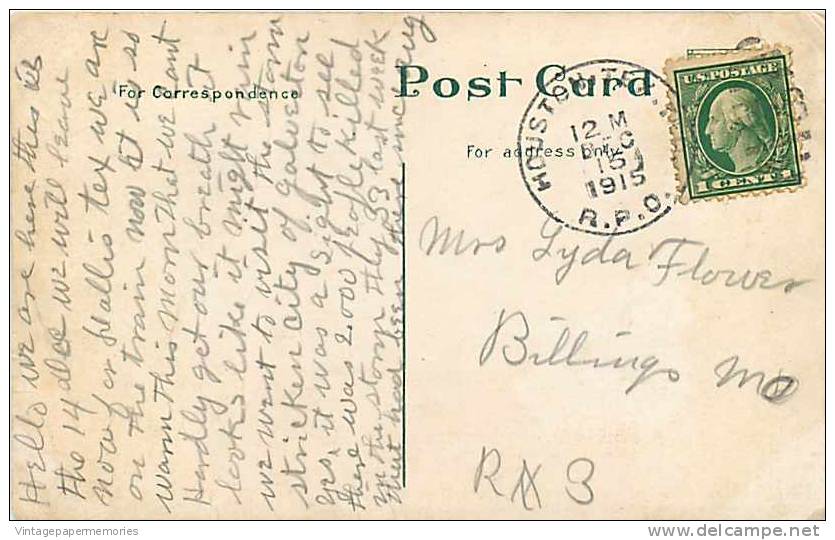 Hello we are here this is
the 14 Dec we will leave
now for Wallis tex we are
on the train now let is so
warm this Morn that we cant
Hardly get our breath it
looks like it might rain
we went to visit the storm
stricken City of Galveston
yes, it was a sight to see
there was 2.000 people killed
in the storm they 33 last week
that had been there since aug
For Correspondence
Post Card
For address only.
HOUSTON
12 M
DEC
15
1915
R.P.O.
U.S. POSTAGE
1 CENT 1
Mrs Lyda Flower
Billings Mo
R 3
Vintagepapermemories
www.delcampe.net